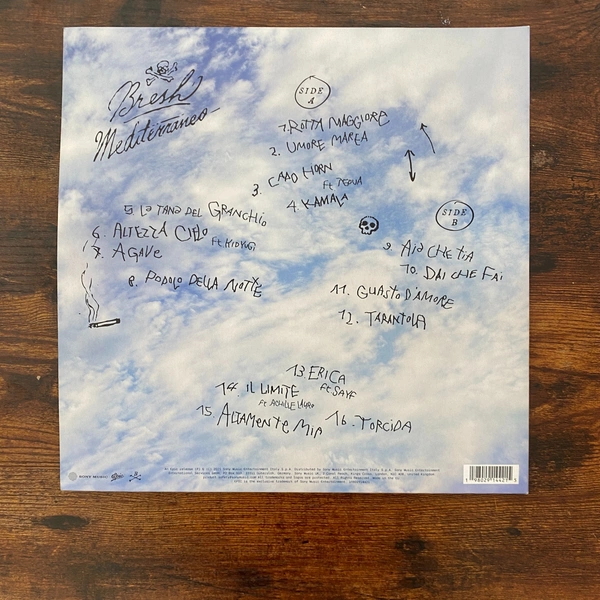 Bresh
Mediterraneo
SIDE A
1. ROTTA MAGGIORE
2. UMORE MAREA
3. CAPO HORN
ft TEDUA
4. KAMALA
5. LA TANA DEL GRANCHIO
6. ALTEZZA CIELO
ft KIDYUGI
7. AGAVE
8. POPOLO DELLA NOTTE
SIDE B
9. AIA CHE TIA
10. DAI CHE FAI
11. GUASTO D'AMORE
12. TARANTOLA
13. ERICA
ft SAYF
14. IL LIMITE
ft ACHILLE LAURO
15. ALTAMENTE MIA
16. TORCIDA
SONY MUSIC